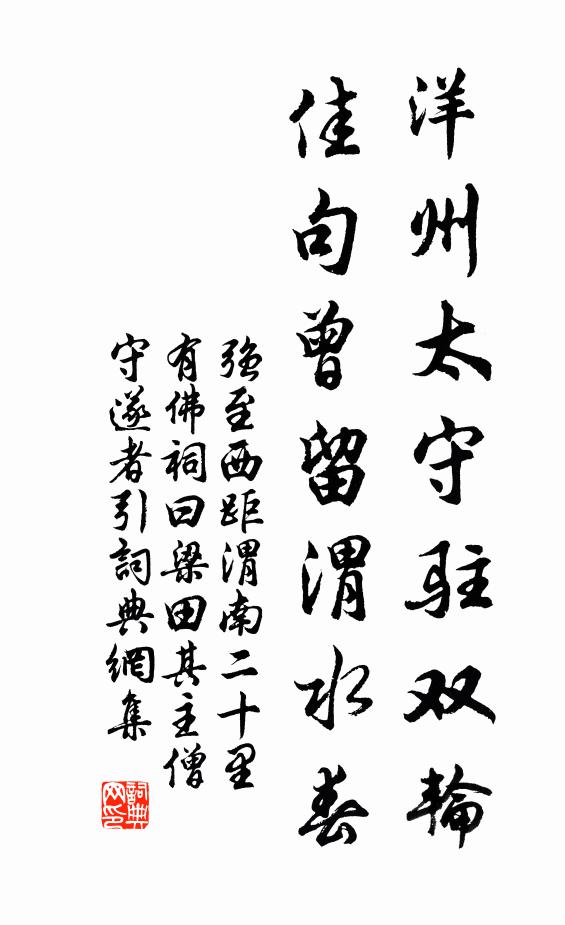 洋州太守驻双轮
佳句曾留渭水春
强至西距渭南二十里
有佛祠曰梁田其主僧
守遂者引詞典網集
詞典
网印